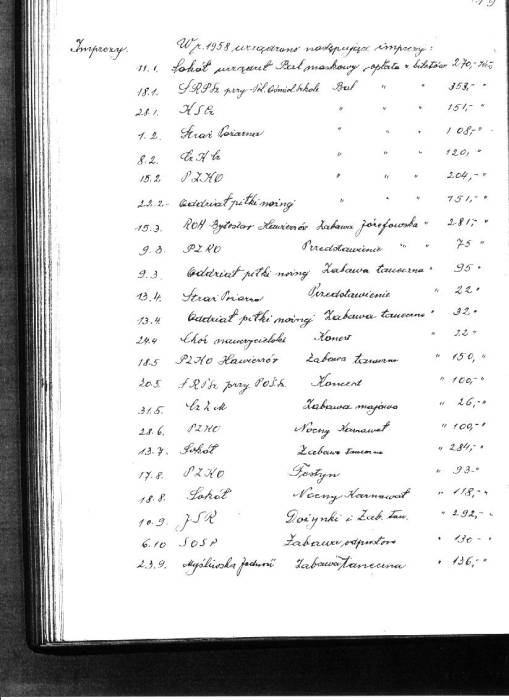 Imprezy. W r. 1958 urządzono następujące imprezy:
11.1. Sokół urządził Bal maskowy, opłata z biletów 270,- Kčs
18.1. SRPSz przy Pol. Ośmiol. Szkole Bal " " 353,- "
28.1. KSČ " " " 151,- "
1.2. Straż Pożarna " " " 108,- "
8.2. Cz K Cz " " " 120,- "
15.2. PZKO " " " 204,- "
22.2. Oddział piłki nożnej " " " 151,- "
15.3. ROH Bytostav Hawierzów Zabawa Józefowska " 281,- "
9.3. PZKO Przedstawienie " " 75 "
9.3. Oddział piłki nożnej Zabawa taneczna " 95 "
13.4. Straż Pożarna Przedstawienie " 22 "
13.4. Oddział piłki nożnej Zabawa taneczna " 32 "
24.4 Chór nauczycielski Koncert " 22 "
18.5 PZKO Hawierzów Zabawa taneczna " 150, "
20.5 SRPSz przy POSz Koncert " 100,- "
31.5. Cz Z M Zabawa majowa " 26,- "
28.6. PZKO Nocny Karnawał " 100,- "
13.7. Sokół Zabawa taneczna " 284,- "
17.8. PZKO Festyn " 93- "
18.8. Sokół Nocny Karnawał " 118,- "
10.9. JSR Dożynki i Zab. tan. " 292,- "
6.10 SOSP Zabawa odpustowa " 130- "
23.9. Myśliwska Zabawa taneczna " 136,- "